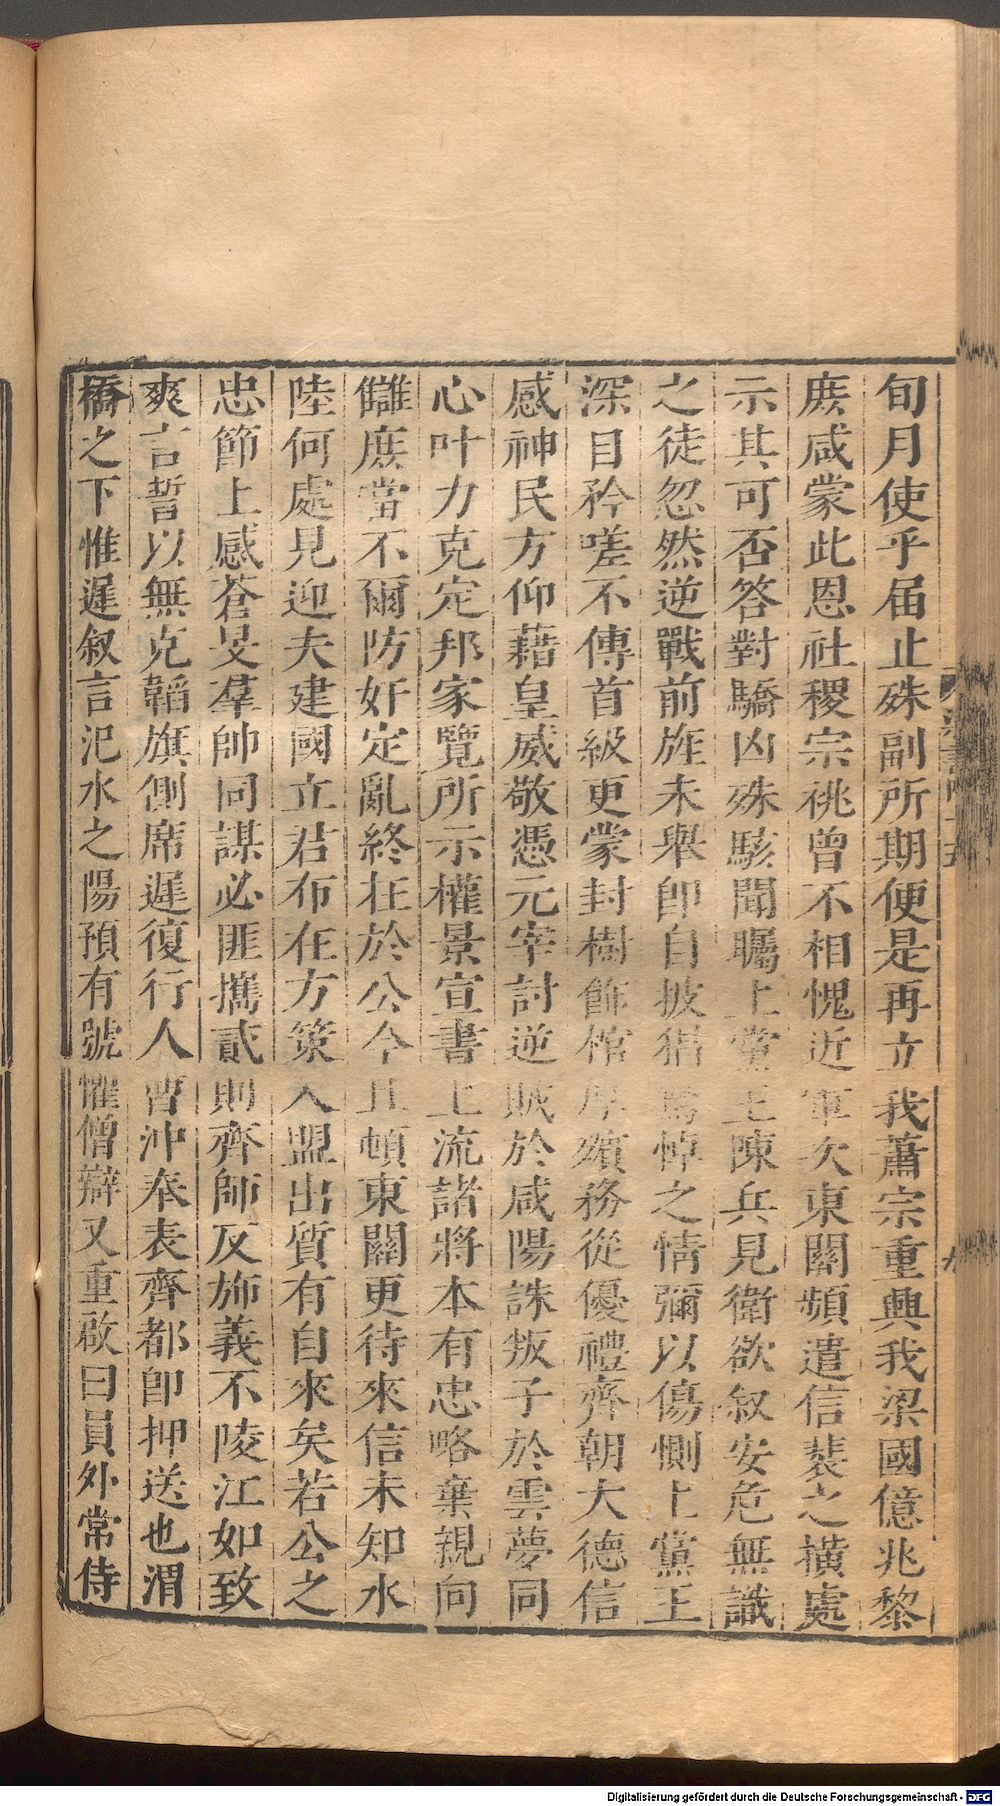 旬月使乎届止殊副所期便是再立我蕭宗重興我梁國億兆黎
庶咸蒙此恩社稷宗祧曾不相愧近軍次東關頻遣信裴之橫處
示其可否答對驕凶殊駭聞矚上黨王陳兵見衛欲叙安危無識
之徒忽然逆戰前旌未舉即自披猖驚悼之情彌以傷惻上黨王
深自矜嗟不傳首級更蒙封樹飾棺厚殯務從優禮齊朝大德信
感神民方仰藉皇威敬憑元宰討逆賊於咸陽誅叛子於雲夢同
心叶力克定邦家覽所示權景宣書上流諸將本有忠略棄親向
讎庶當不爾防奸定亂終在於公今且頓東關更待來信未知水
陸何處見迎夫建國立君布在方策入盟出質有自來矣若公之
忠節上感蒼旻羣帥同謀必匪攜貳則齊師反斾義不陵江如致
爽言誓以無克韜旗側席遲復行人曹沖奉表齊都即押送也渭
橋之下惟遲叙言汜水之陽預有號懼僧辯又重啟曰員外常侍
九
Digitalisierung gefördert durch die Deutsche Forschungsgemeinschaft - DFG